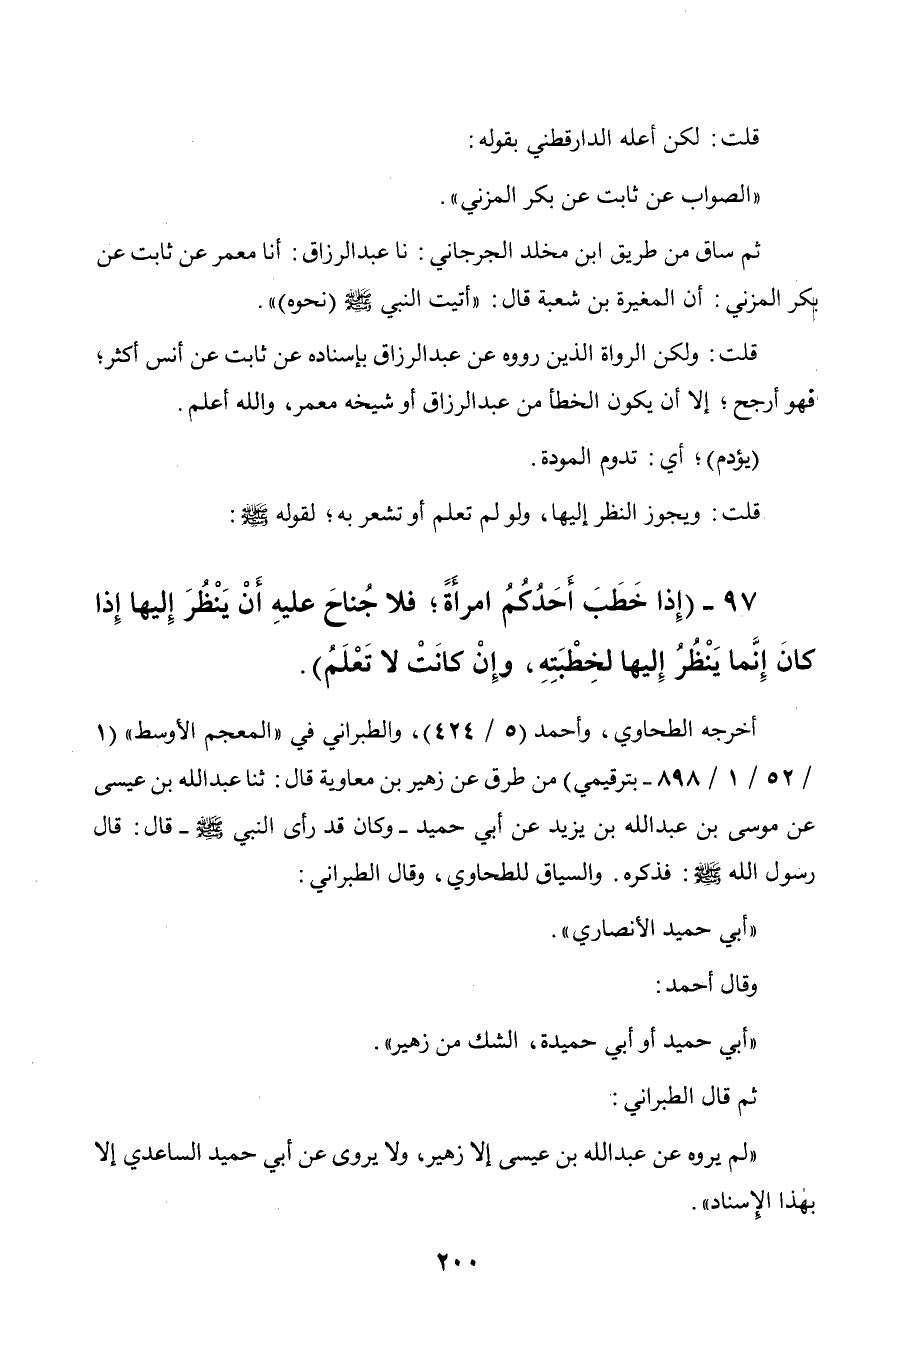 قلت : لكن أعله الدارقطني بقوله :
«الصواب عن ثابت عن بكر المزني» .
ثم ساق من طريق ابن مخلد الجرجاني : نا عبدالرزاق : أنا معمر عن ثابت عن
بكر المزني : أن المغيرة بن شعبة قال : «أتيت النبي ﷺ (نحوه)» .
قلت : ولكن الرواة الذين رووه عن عبدالرزاق بإسناده عن ثابت عن أنس أكثر ؛
فهو أرجح ؛ إلا أن يكون الخطأ من عبدالرزاق أو شيخه معمر، والله أعلم .
(يؤدم) ؛ أي : تدوم المودة .
قلت : ويجوز النظر إليها، ولو لم تعلم أو تشعر به ؛ لقوله ﷺ :
٩٧ ـ (إِذا خَطَبَ أَحَدُكُمُ امرأَةً ؛ فلا جُناحَ عليهِ أَنْ يَنْظُرَ إِليها إِذا
كانَ إِنَّما يَنْظُرُ إِليها لخِطْبَتِهِ ، وإِنْ كانَتْ لا تَعْلَمُ) .
أخرجه الطحاوي ، وأحمد (٥ / ٤٢٤) ، والطبراني في «المعجم الأوسط» (١
/ ٥٢ / ١ / ٨٩٨ ـ بترقيمي) من طرق عن زهير بن معاوية قال : ثنا عبدالله بن عيسى
عن موسى بن عبدالله بن يزيد عن أبي حميد ـ وكان قد رأى النبي ﷺ ـ قال : قال
رسول الله ﷺ : فذكره . والسياق للطحاوي ، وقال الطبراني :
«أبي حميد الأنصاري» .
وقال أحمد :
«أبي حميد أو أبي حميدة ، الشك من زهير» .
ثم قال الطبراني :
«لم يروه عن عبدالله بن عيسى إلا زهير، ولا يروى عن أبي حميد الساعدي إلا
بهذا الإسناد» .
٢٠٠